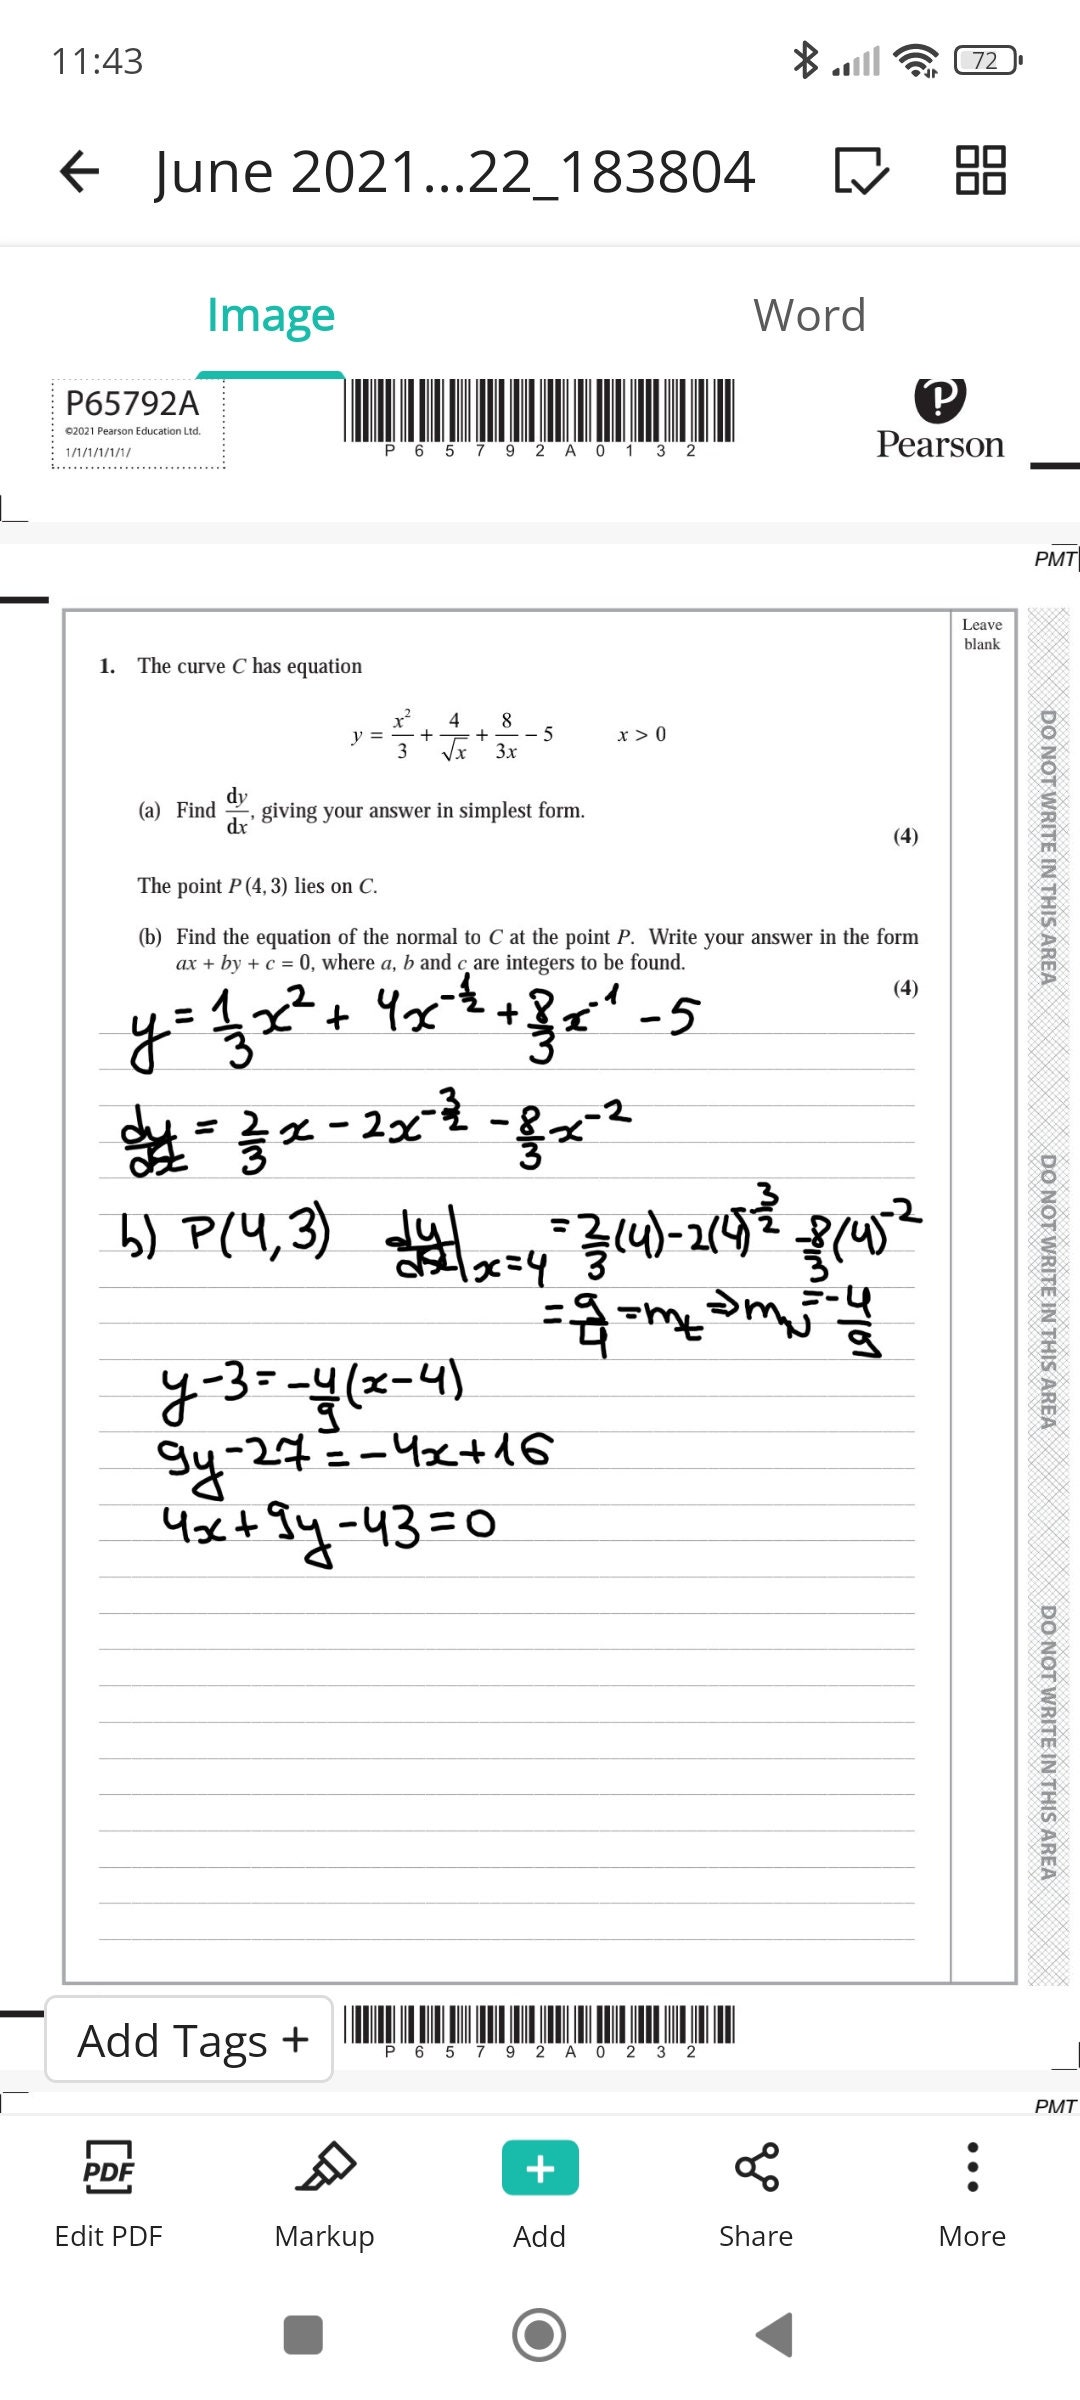 11:43
72
June 2021...22_183804
Image
Word
P65792A
©2021 Pearson Education Ltd.
1/1/1/1/1/1/
P 6 5 7 9 2 A 0 1 3 2
Pearson
PMT
Leave
blank
1. The curve C has equation
y = x²/3 + 4/√x + 8/3x − 5    x > 0
(a) Find dy/dx, giving your answer in simplest form.
(4)
The point P(4, 3) lies on C.
(b) Find the equation of the normal to C at the point P. Write your answer in the form
ax + by + c = 0, where a, b and c are integers to be found.
(4)
y = 1/3 x² + 4x^(-1/2) + 8/3 x^(-1) - 5
dy/dx = 2/3 x - 2x^(-3/2) - 8/3 x^(-2)
b) P(4,3) dy/dx|x=4 = 2/3(4) - 2(4)^(-3/2) - 8/3(4)^(-2)
= 9/4 = mt ⇒ mN = -4/9
y - 3 = -4/9(x - 4)
9y - 27 = -4x + 16
4x + 9y - 43 = 0
DO NOT WRITE IN THIS AREA
DO NOT WRITE IN THIS AREA
DO NOT WRITE IN THIS AREA
Add Tags +
P 6 5 7 9 2 A 0 2 3 2
PMT
PDF
Edit PDF
Markup
Add
Share
More